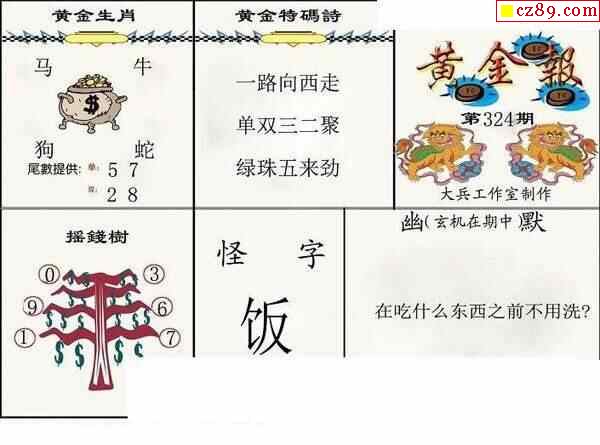 cz89.com
黄金生肖
马 牛
狗 蛇
尾數提供: 单: 5 7
双: 2 8
黄金特碼詩
一路向西走
单双三二聚
绿珠五来劲
黄金報
第324期
大兵工作室制作
摇錢樹
0 3
9 6
1 7
怪 字
饭
幽(玄机在期中)默
在吃什么东西之前不用洗?